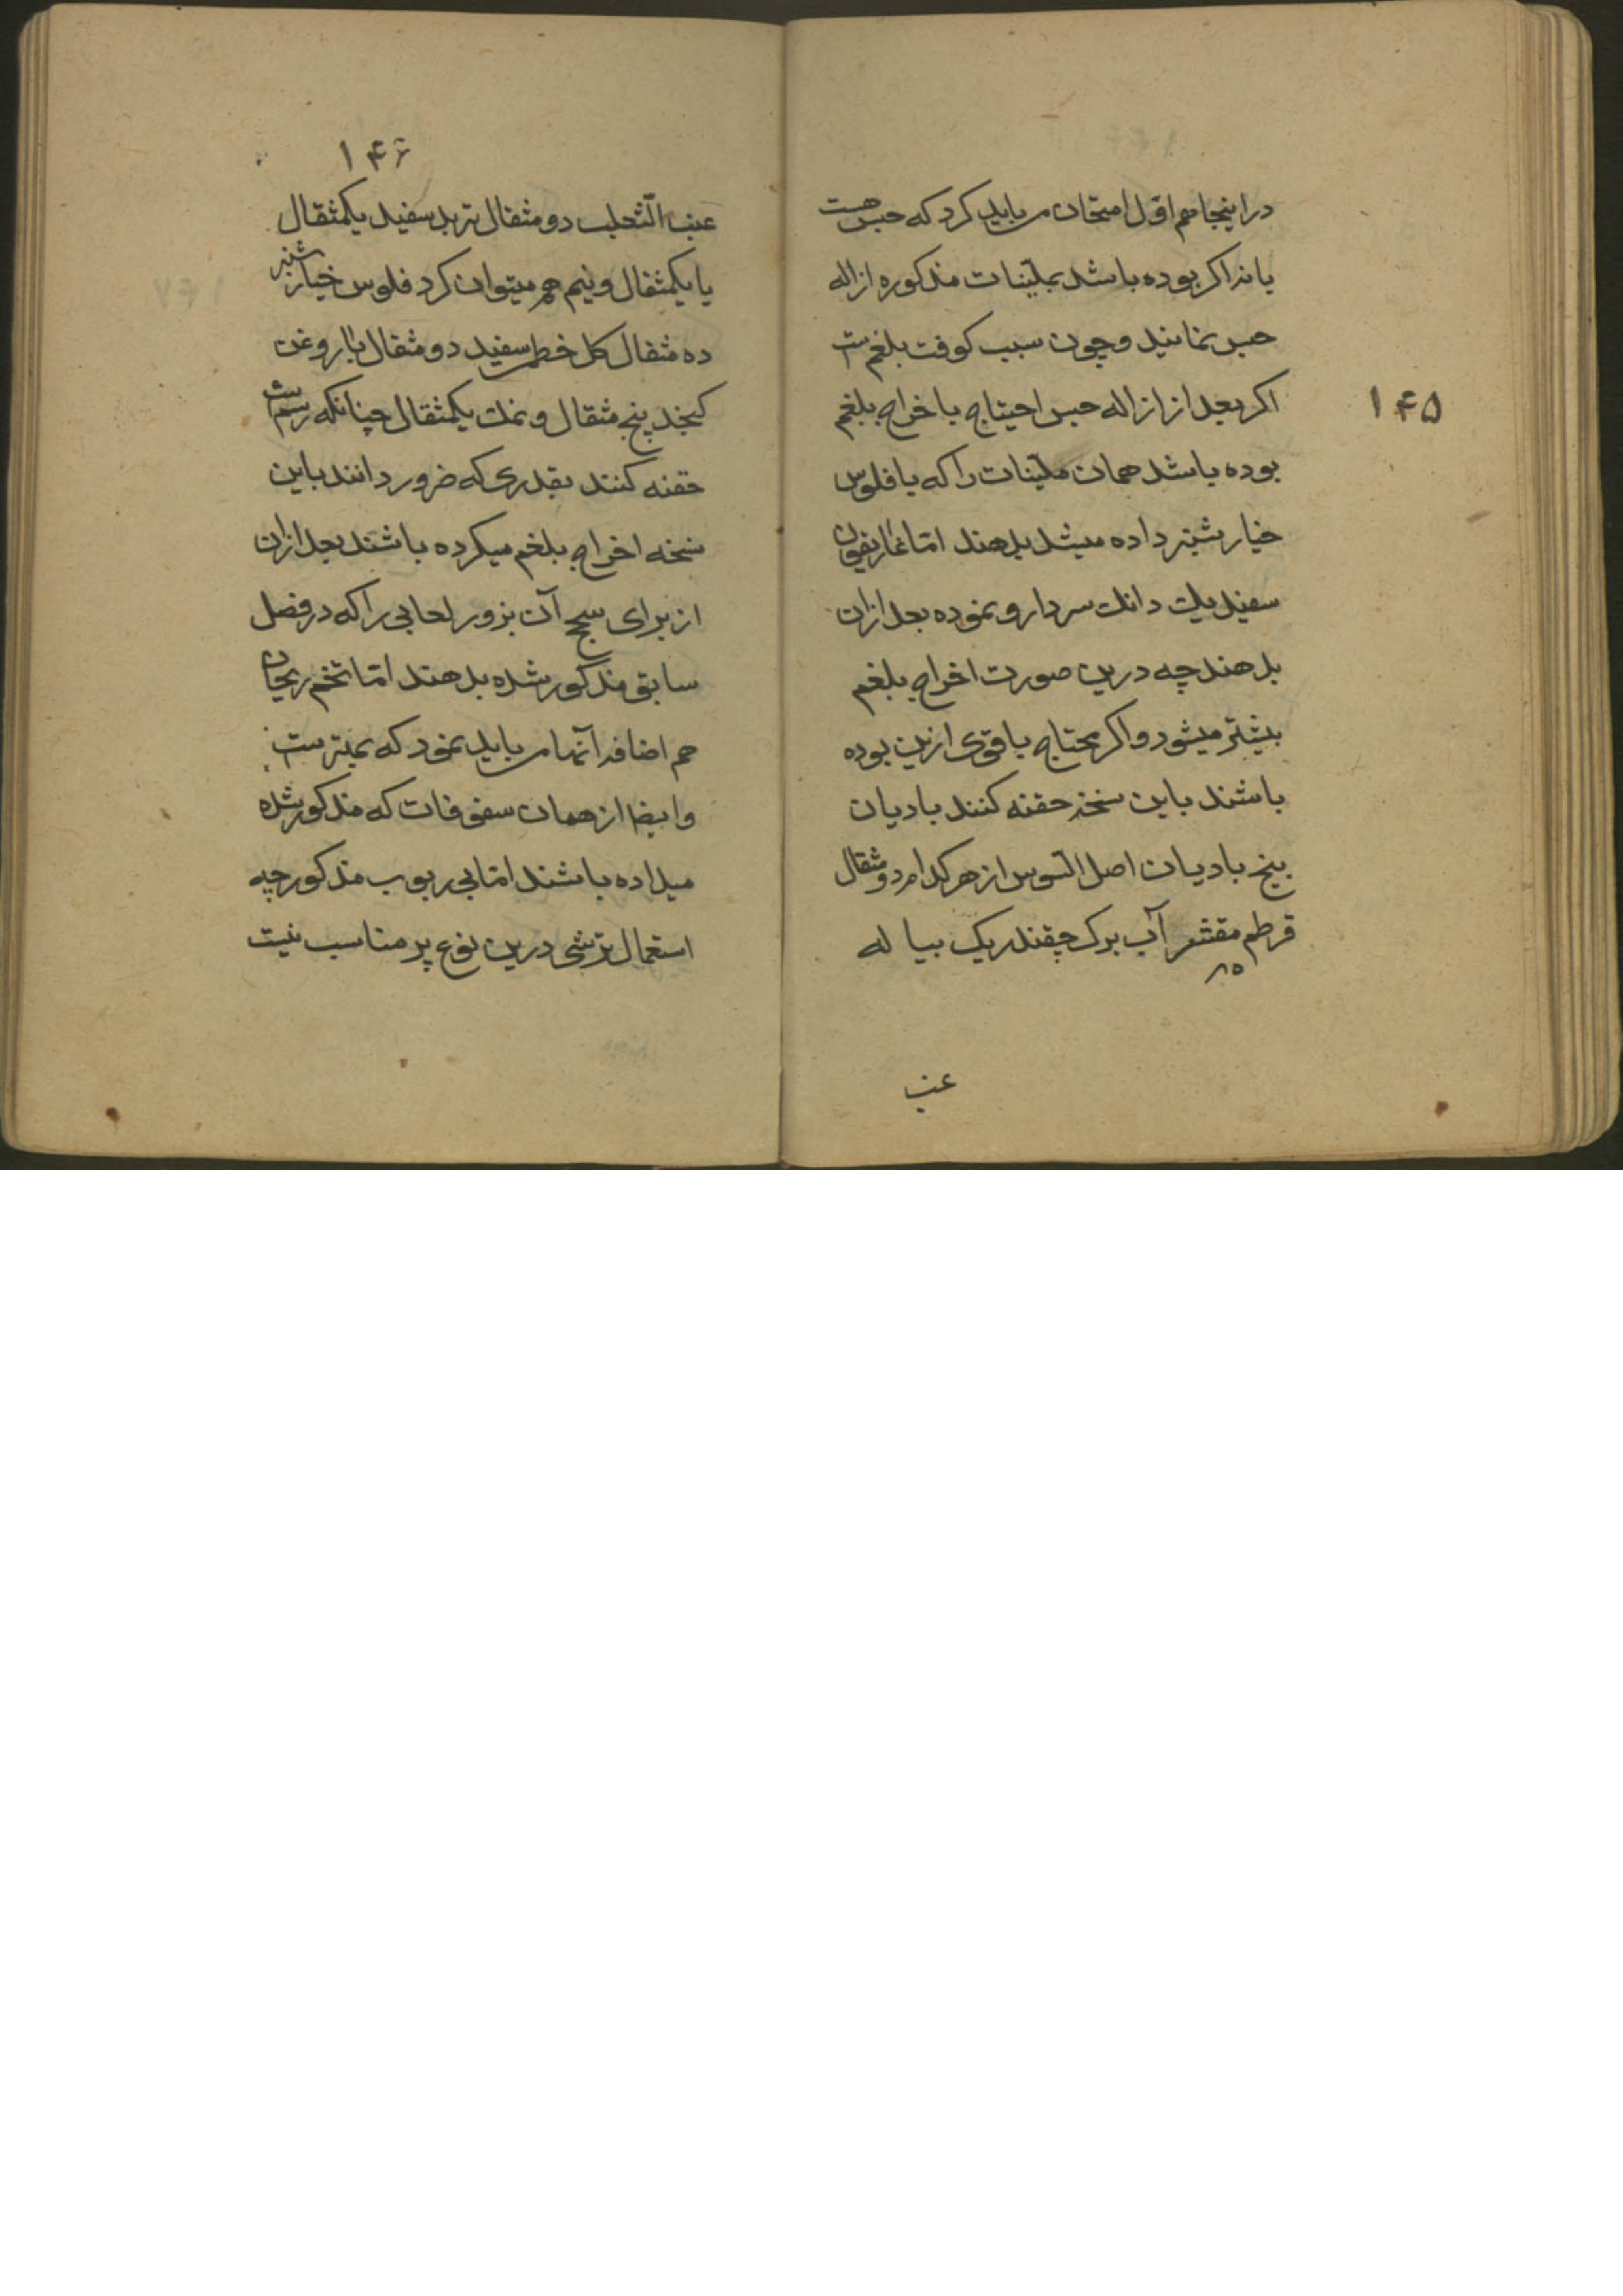 ۱۴۵
در اینجا هم اوّل امتحان می باید کرد که حبس هست
یا نه اکر بوده باشد بملیّنات مذکوره ازاله
حبس نمایند و چون سبب کوفت بلغم ست
اکر بعد از ازاله حبس احتیاج باخراج بلغم
بوده باشد همان ملیّنات را که با فلوس
خیار شنبر داده میشد بدهند امّا غاریقون
سفید یک دانک سر دارو نموده بعد ازان
بدهند چه درین صورت اخراج بلغم
بیشتر میشود و اکر محتاج باقوی ازین بوده
باشند باین نسخه حقنه کنند بادیان
بیخ بادیان اصل السّوس از هر کدام دو مثقال
قرطم مقشر آب برک چقندر یک پیاله
عنب
۱۴۶
عنب الثّعلب دو مثقال تربد سفید یکمثقال
یا یکمثقال و نیم هم میتوان کرد فلوس خیار شنبر
ده مثقال کل خطمی سفید دو مثقال با روغن
کنجد پنج مثقال و نمک یکمثقال چنانکه رسم ست
حقنه کنند بقدری که ضرور دانند باین
نسخه اخراج بلغم میکرده باشند بعد ازان
از برای سحج آن بزور لعابی را که در فصل
سابق مذکور شده بدهند امّا تخم ریحان
هم اضافه آنها می باید نمود که بهترست
و ایضا از همان سفوفات که مذکور شده
میداده باشند امّا بی ربوب مذکور چه
استعمال ترشی درین نوع پر مناسب نیست